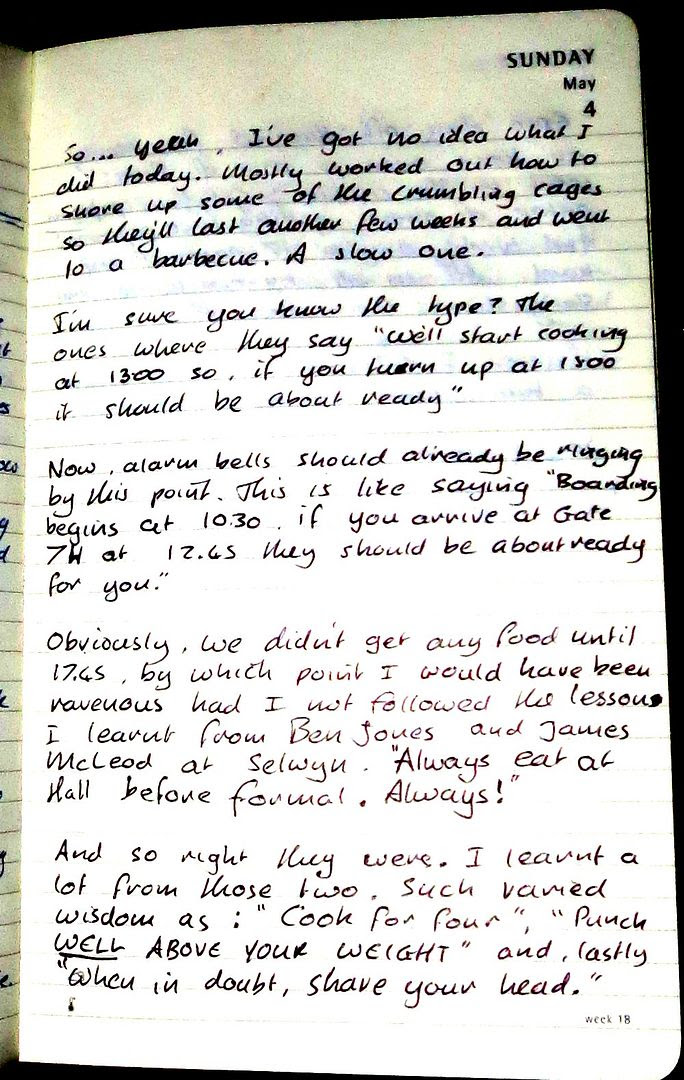 SUNDAY
May
4
So... yeah, I've got no idea what I
did today. Mostly worked out how to
shore up some of the crumbling cages
so they'll last another few weeks and went
to a barbecue. A slow one.
I'm sure you know the type? The
ones where they say "We'll start cooking
at 1300 so, if you turn up at 1500
it should be about ready"
Now, alarm bells should already be ringing
by this point. This is like saying "Boarding
begins at 10.30, if you arrive at Gate
7H at 12.45 they should be about ready
for you."
Obviously, we didn't get any food until
17.45, by which point I would have been
ravenous had I not followed the lessons
I learnt from Ben Jones and James
McLeod at Selwyn. "Always eat at
Hall before formal. Always!"
And so right they were. I learnt a
lot from those two. Such varied
wisdom as: "Cook for four", "Punch
WELL ABOVE YOUR WEIGHT" and, lastly
"When in doubt, shave your head."
week 18